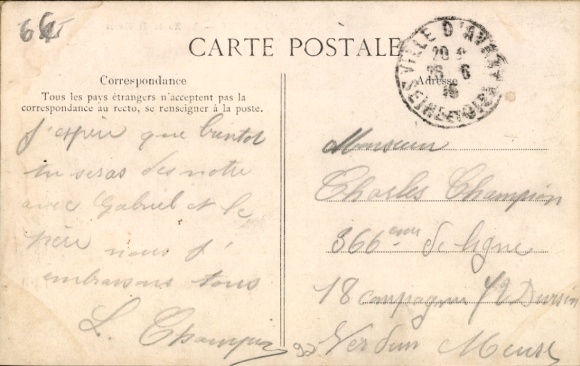 66
CARTE POSTALE
VILLE D'AVRAY
26 6
16
SEINE-ET-OISE
Correspondance
Tous les pays étrangers n'acceptent pas la
correspondance au recto, se renseigner à la poste.
Adresse
J'espere que bientot
tu seras des notre
avec Gabriel et le
père nous t'
embrasons tous
L. Champion
Monsieur
Charles Champion
366eme de ligne
18 compagnie 72 Division
Verdun Meuse